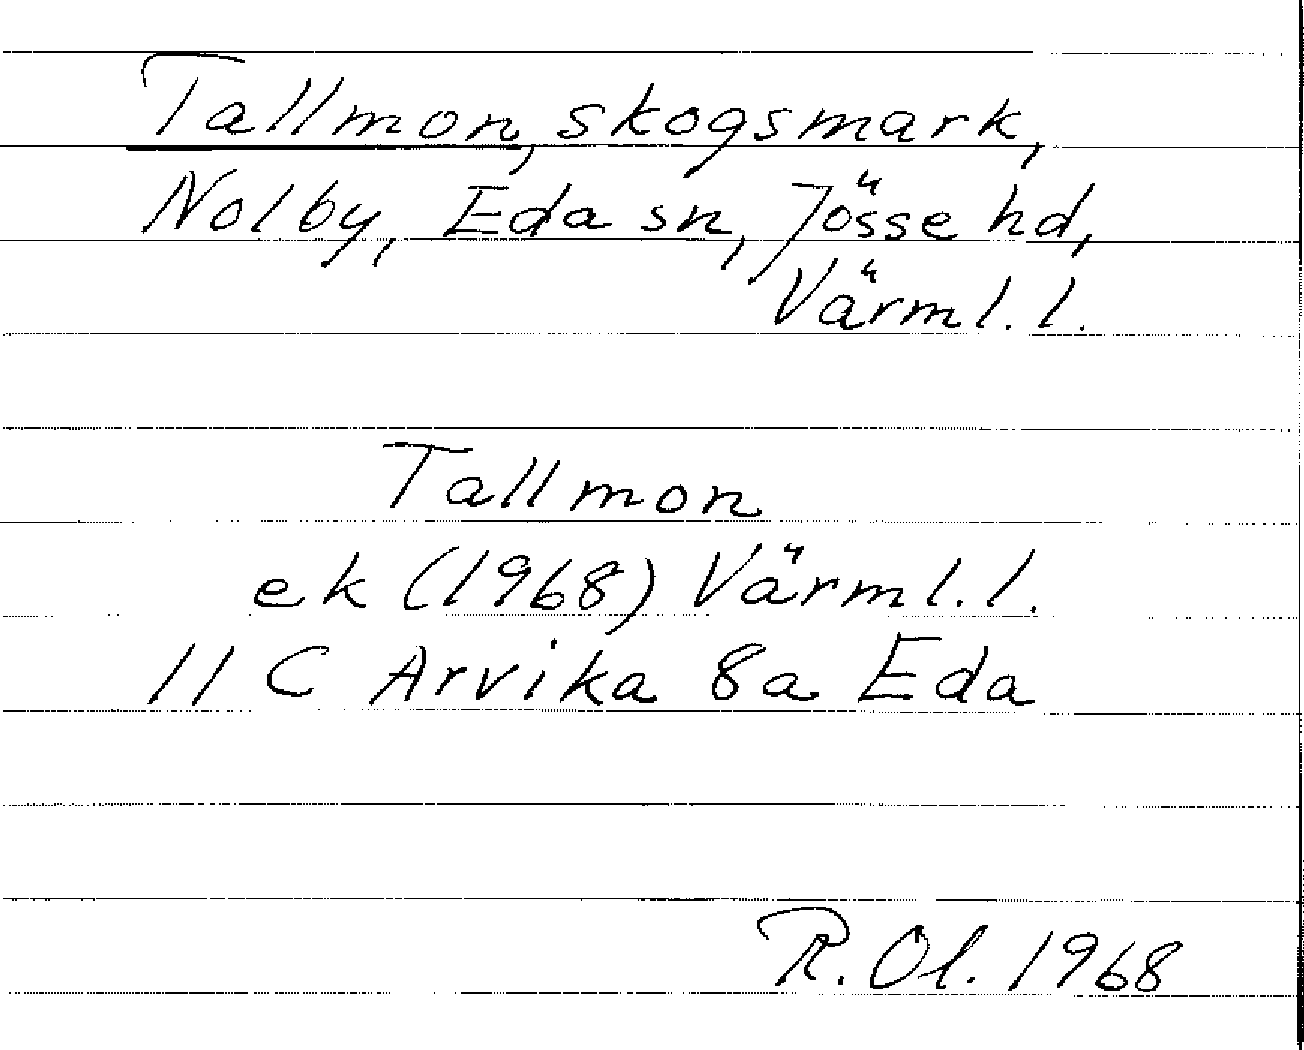 Tallmon, skogsmark,
Nolby, Eda sn, Jösse hd,
Värml. l.
Tallmon
ek (1968) Värml. l.
11 C Arvika 8a Eda
R. Ol. 1968